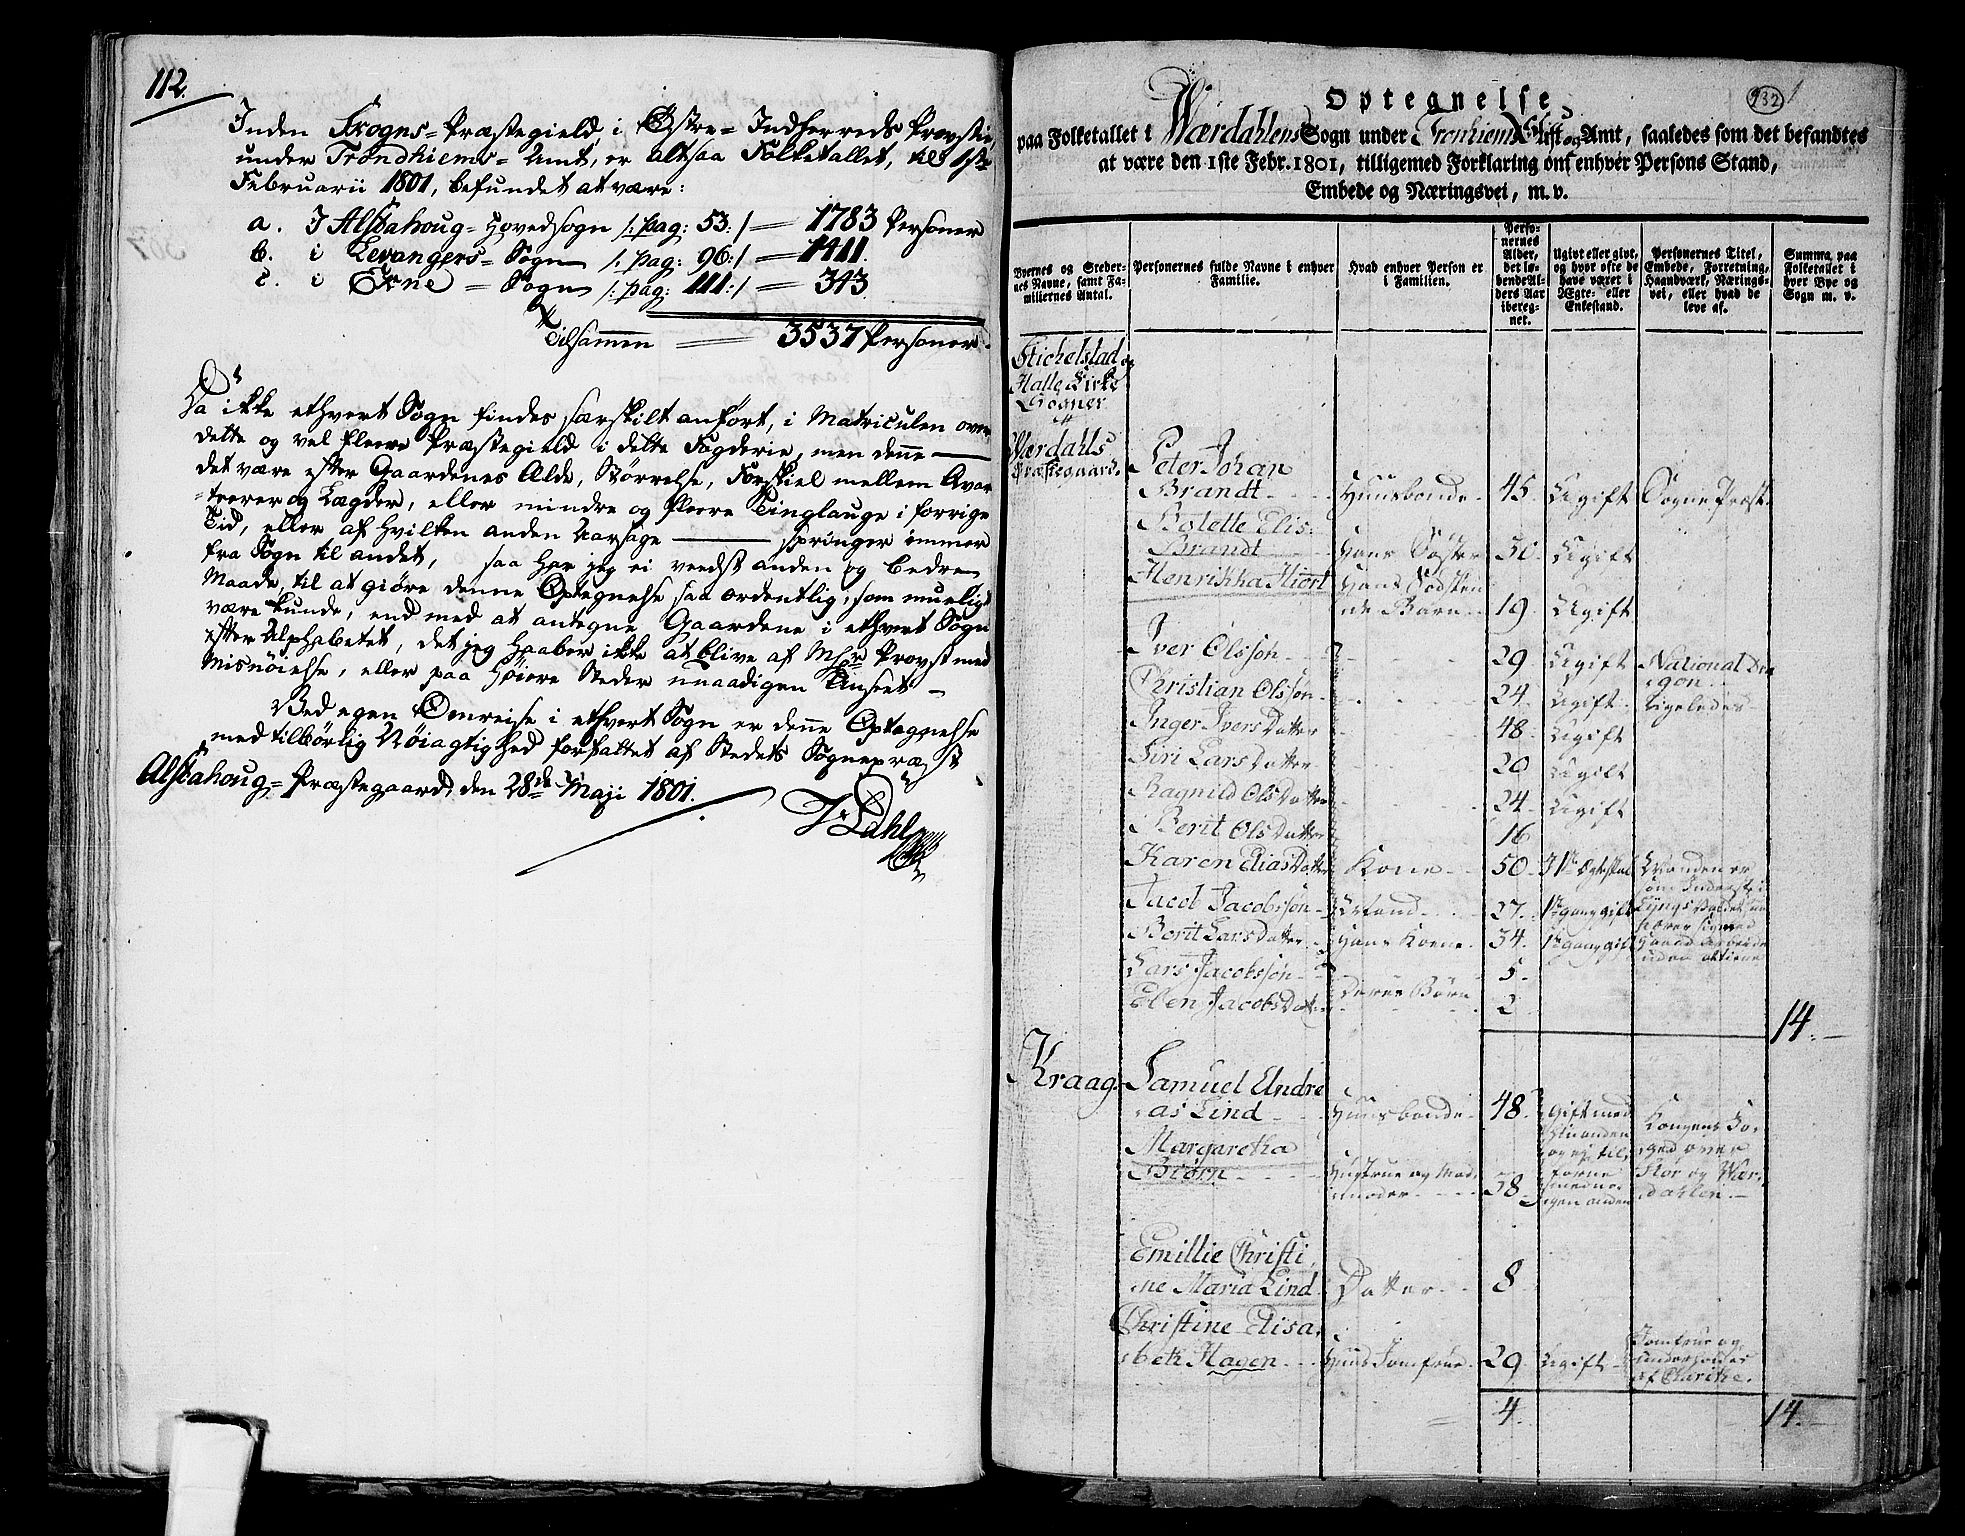 112.
Inden Skogns=Præstegield, i Østre= Indherreds Provstie,
under Trondhiems= Amt, er altsaa Folketallet, til 1ste
Februarii 1801, befundet at være:
a. I Alstahoug=Hovedsogn /: pag: 53:/ = 1783 Personer
b. i Levangers= Sogn /: pag: 96:/ = 1411.
c. i Ekne = Sogn /: pag: 111:/ = 343
Tilsammen = 3537 Personer.
Da ikke ethvert Sogn findes særskilt anført, i Matriculen over
dette og vel fleere Præstegield i dette Fogderie, men denne —
det være efter Gaardenes Alde, Størrelse, Forskiel mellem Qvar
=terer og Lægder, eller mindre og fleere Tinglauge i forrige
Tid, eller af hvilken anden Aarsage — springer immer
fra Sogn til andet, saa har jeg ei veedst anden og bedre
Maade, til at giøre denne Optegnelse saa ordentlig, som mueligt
være kunde, end med at antegne Gaardene i ethvert Sogn
efter Alphabetet, det jeg haaber ikke at blive af Hr Provst med
Misnøielse, eller paa høiere Steder unaadigen Anseet —
Ved egen Omreise i ethvert Sogn er denne Optegnelse
med tilbørlig Nøiagtighed forfattet af Stedets Sognepræst
Alstahoug=Præstegaard, den 28de Maji 1801.
J Dahl
932 1
Optegnelse
paa Folketallet i Værdahlens Sogn under Tronhiems Stift og Amt, saaledes som det befandtes
at være den 1ste Febr. 1801, tilligemed Forklaring om enhver Persons Stand,
Embede og Næringsvei, m. v.
Byernes og Stedernes Navne, samt Familiernes Antal.
Personernes fulde Navne i enhver Familie.
Hvad enhver Person er i Familien.
Personernes Alder, det løbende Alders Aar iberegnet.
Ugivt eller givt, og hvor ofte de have været i Ægte- eller Enkestand.
Personernes Titel, Embede, Forretning, Haandværk, Næringsvei, eller hvad de leve af.
Summa, paa Folketallet i hver Bye og Sogn m. v.
Stichelstad og
Halle Kirke
Sogner
Værdahls
Præstegaard.
Peter Johan
Brandt Huusbonde 45 Ugift Sogne Præst
Bolette Elis:
Brandt Hans Søster 30 Ugift
Henrikka Hiort Hans Sødsken
de Barn 19 Ugift
Iver Olsson 29 Ugift National Dra
gon
Christian Olsson 24 Ugift Ligeledes
Inger Ivers Datter 48 Ugift
Siri Lars Datter 20 Ugift
Ragnild Ols Datter 24 Ugift
Berit Ols Datter 16
Karen Elias Datter Kone 50 I 1te Ægtestand Manden er
som Inderst i
Jacob Jacobsson 27 1te gang gift
Berit Lars Datter Hans Kone 34 1te gang gift
Lars Jacobsson 5
Elen Jacobs Datter Deres Børn 2
14.
Kraag. Samuel Andre
as Lind Huusbonde 48 gift med
hinanden
og ej til
forne
med no
gen anden
Kongens Fo
ged over
Stør og Vær
dahlen
Margaretha
Brørn Hustrue og Mad
moder 38
Emillie Christi
ne Maria Lind Datter 8
Christine Elisa
beth Hagen Huus Jomfrue 29 Ugift Jomfrue og
underholdes
af
4. 14.